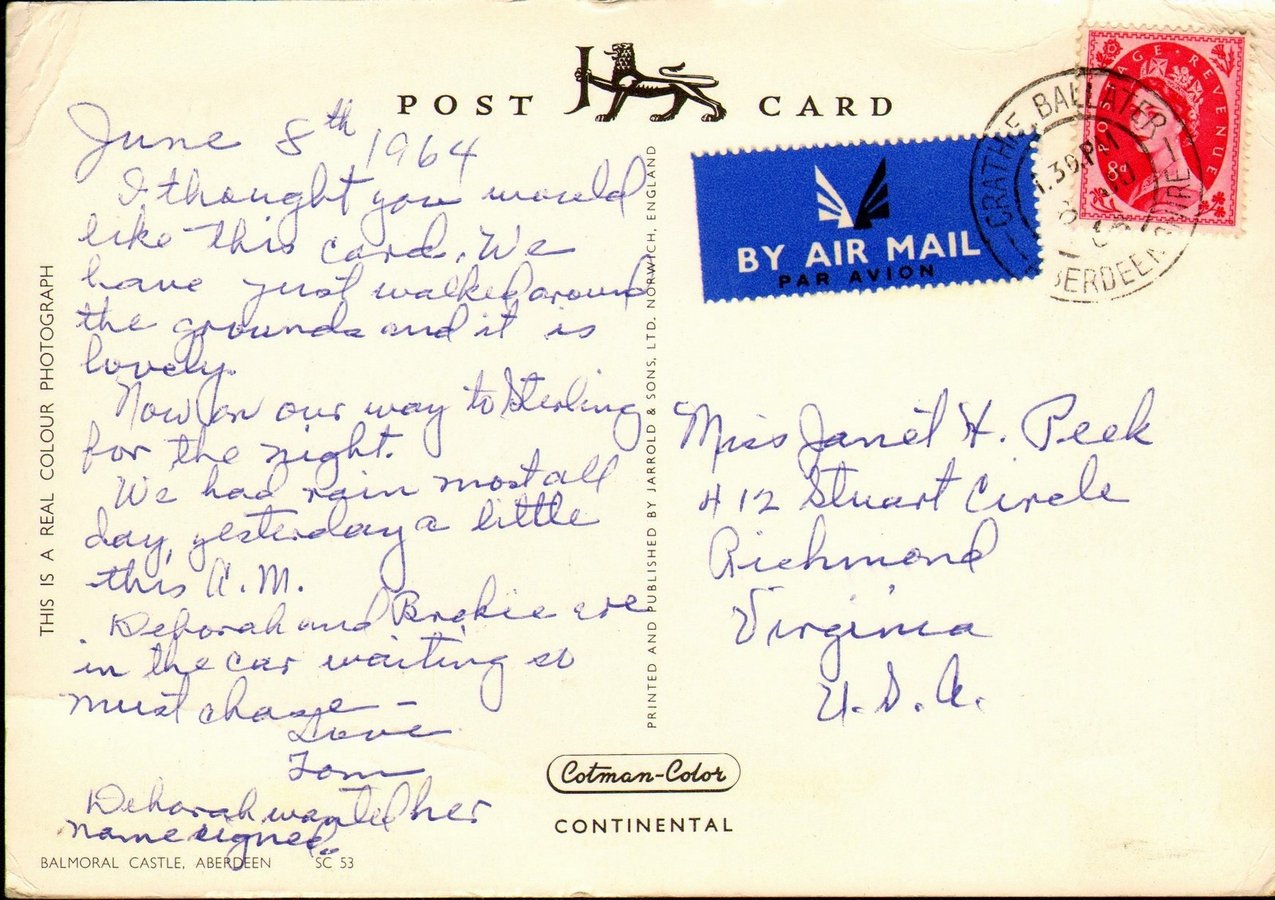 POST CARD
June 8th 1964
I thought you would
like this card. We
have just walked around
the grounds and it is
lovely.
Now on our way to Sterling
for the night.
We had rain most all
day, yesterday a little
this A.M.
Deborah and are
in the car waiting so
must chase -
Love
Tom
Deborah wanted her
name signed.
BALMORAL CASTLE, ABERDEEN SC 53
THIS IS A REAL COLOUR PHOTOGRAPH
PRINTED AND PUBLISHED BY JARROLD & SONS, LTD. NORWICH, ENGLAND
BY AIR MAIL
PAR AVION
POSTAGE REVENUE
8D
CRATHIE, BALLATER
ABERDEENSHIRE
.30 PM
Miss Janet H. Peek
412 Stuart Circle
Richmond
Virginia
U.S.A.
Cotman-Color
CONTINENTAL